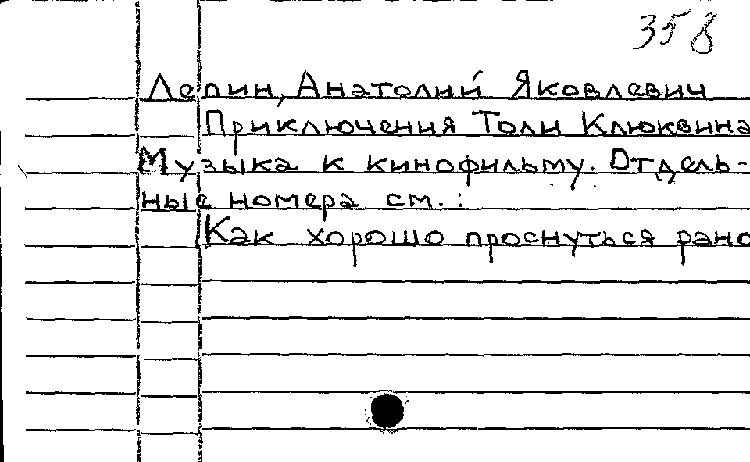 358
Лепин, Анатолий Яковлевич
Приключения Толи Клюквина
Музыка к кинофильму. Отдель-
ные номера см.:
Как хорошо проснуться рано